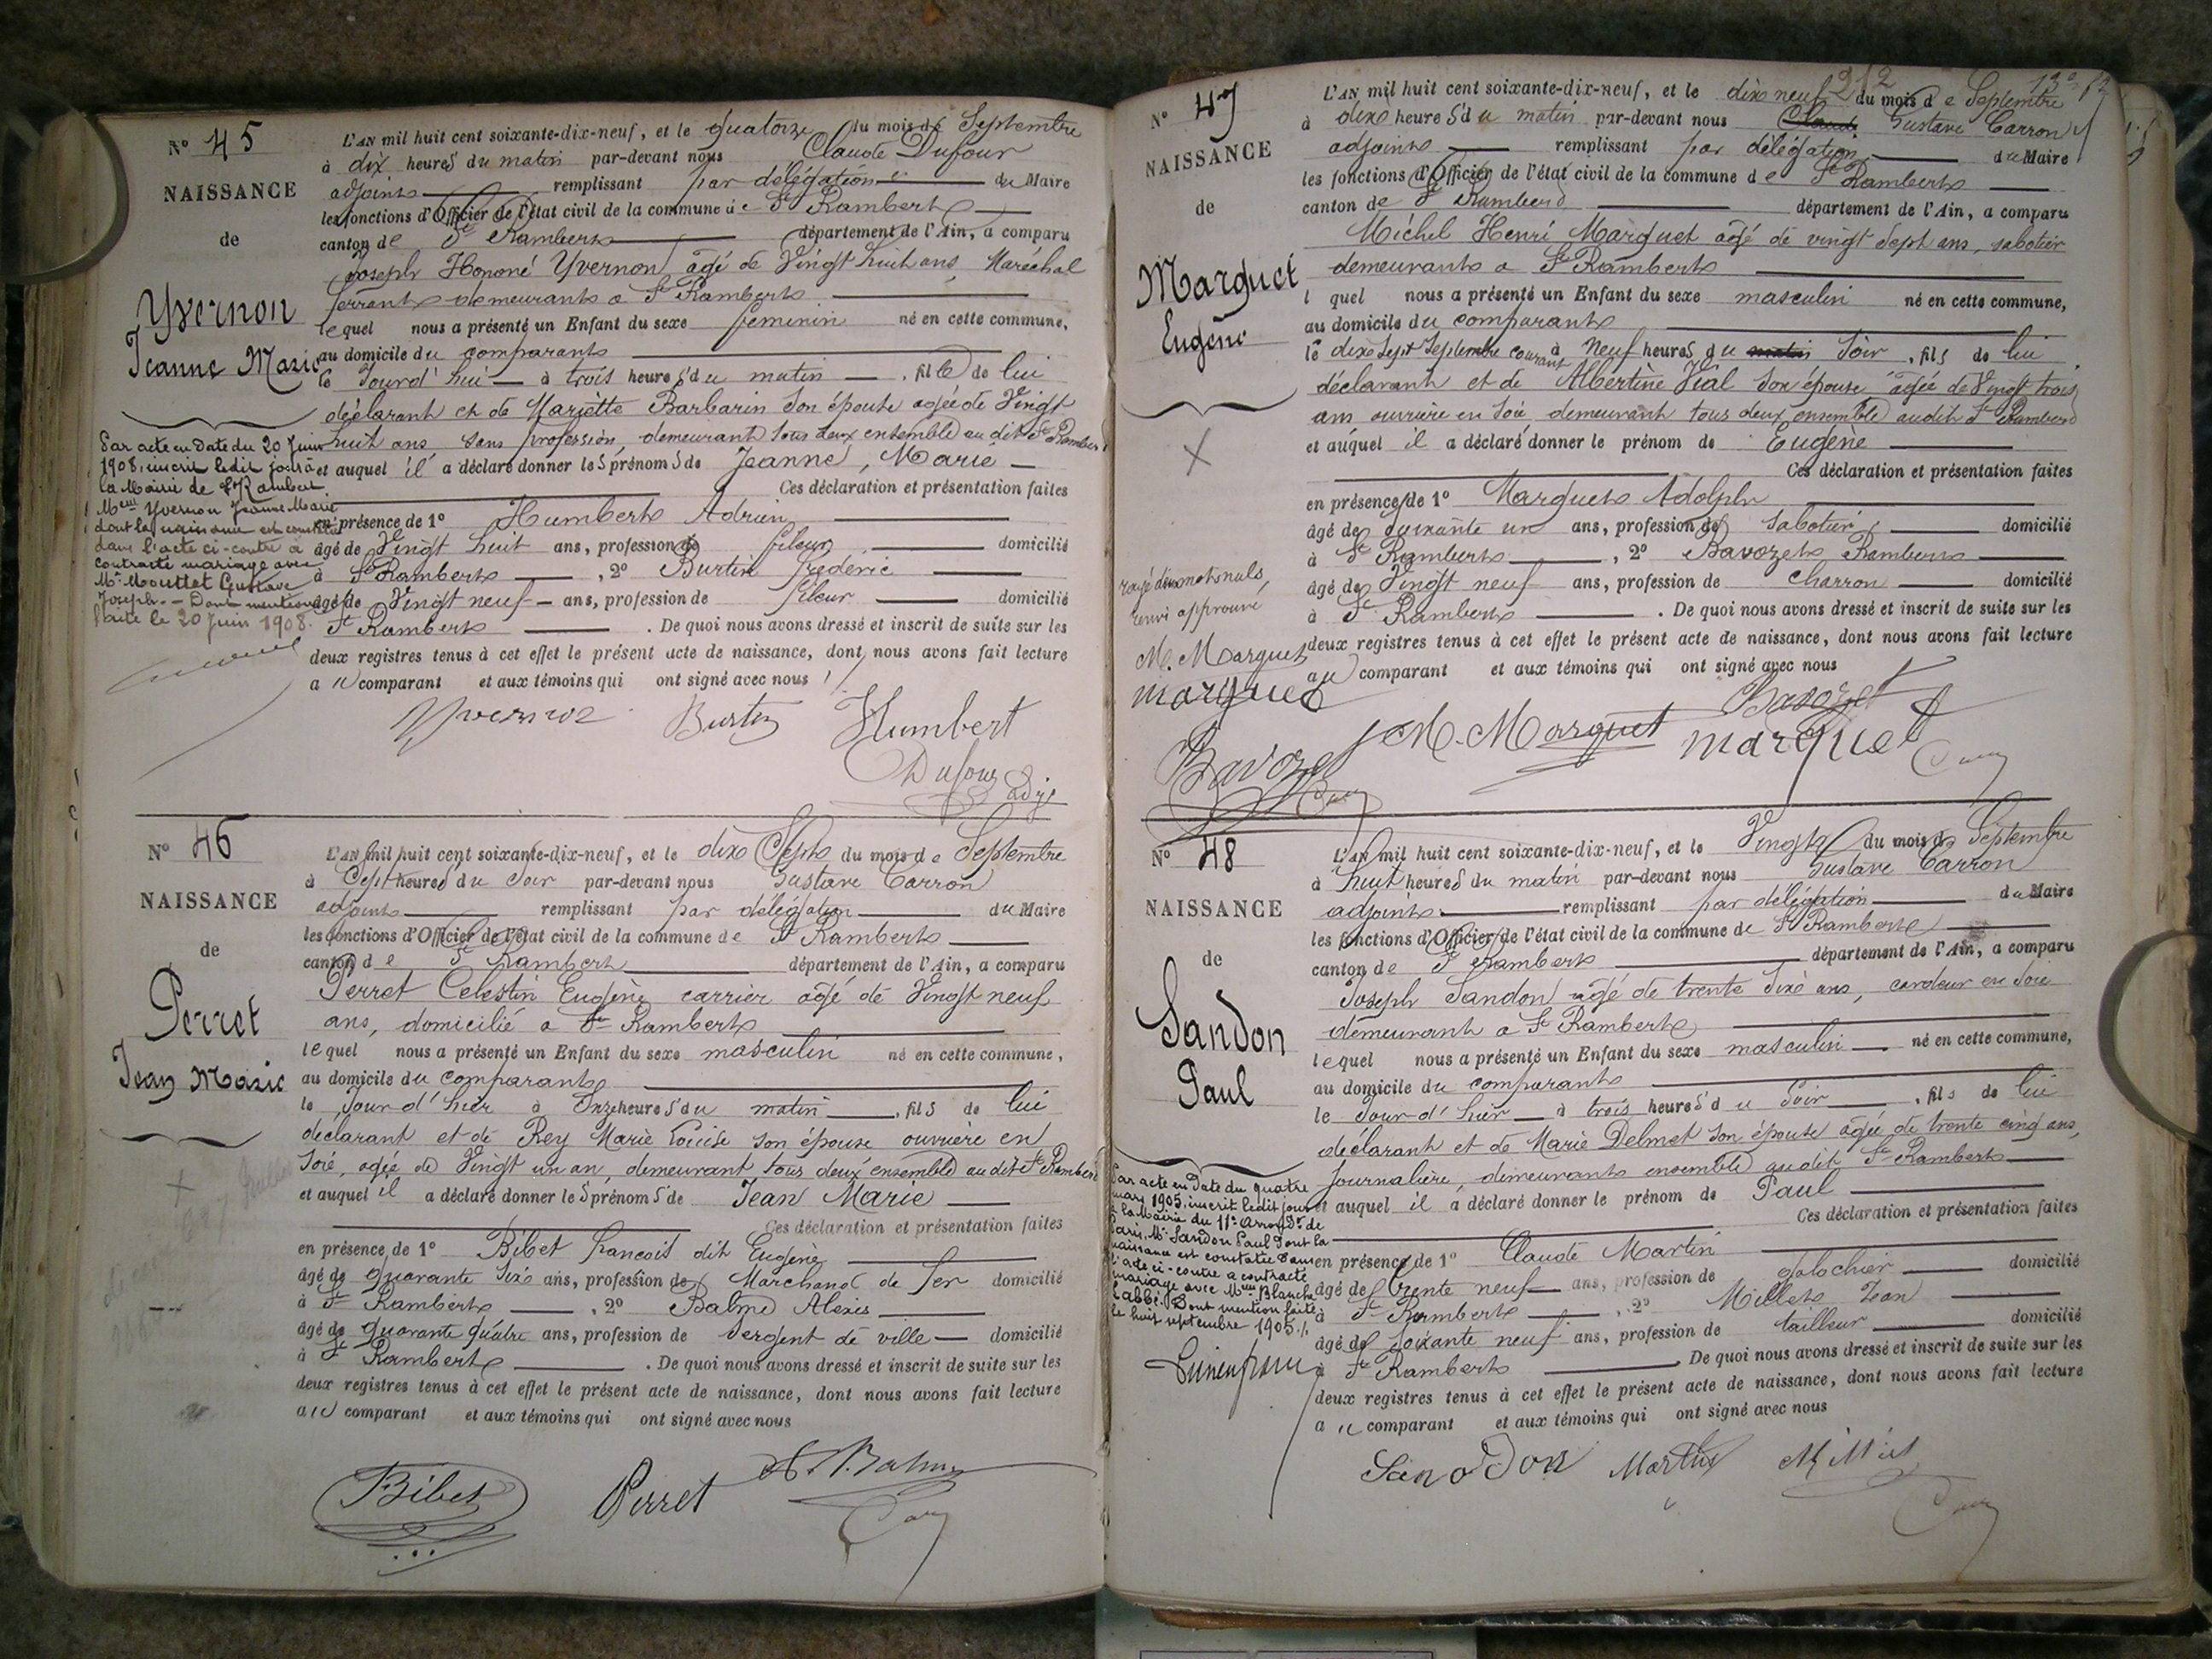 Nº 45
NAISSANCE
de
Yvernon
Jeanne Marie
Par acte en Date du 20 Juin
1908, inscrit ledit jour à
la Mairie de St Rambert
Melle Yvernon Jeanne Marie
dont la naissance est constatée
dans l'acte ci-contre a
contracté mariage avec
Mr Mouttet Gustave
Joseph. — Dont mention
faite le 20 Juin 1908.
L'AN mil huit cent soixante-dix-neuf, et le quatorze du mois de Septembre
à dix heures du matin par-devant nous Claude Dufour
adjoint remplissant par délégation du Maire
les fonctions d'Officier de l'état civil de la commune de St Rambert
canton de St Rambert département de l'Ain, a comparu
Joseph Honoré Yvernon âgé de Vingt huit ans, Maréchal
ferrant demeurant a St Rambert
lequel nous a présenté un Enfant du sexe féminin né en cette commune,
au domicile du comparant
le Jourd'hui à trois heures du matin, fille de lui
déclarant et de Mariette Barbarin son épouse agée de Vingt
huit ans, sans profession, demeurant tous deux ensemble au dit St Rambert
et auquel il a déclaré donner les prénoms de Jeanne, Marie
Ces déclaration et présentation faites
en présence de 1º Humbert Adrien
âgé de Vingt huit ans, profession de fileur domicilié
à St Rambert, 2º Burtin frédéric
âgé de Vingt neuf ans, profession de fileur domicilié
à St Rambert. De quoi nous avons dressé et inscrit de suite sur les
deux registres tenus à cet effet le présent acte de naissance, dont nous avons fait lecture
au comparant et aux témoins qui ont signé avec nous
Yvernon Burtin Humbert
Dufour adj
Nº 46
NAISSANCE
de
Perret
Jean Marie
L'AN mil huit cent soixante-dix-neuf, et le dix Sept du mois de Septembre
à Sept heures du soir par-devant nous Gustave Carron
adjoint remplissant par délégation du Maire
les fonctions d'Officier de l'état civil de la commune de St Rambert
canton de St Rambert département de l'Ain, a comparu
Perret Celestin Eugène carrier âgé de Vingt neuf
ans, domicilié a St Rambert
lequel nous a présenté un Enfant du sexe masculin né en cette commune,
au domicile du comparant
le Jour d'hier à Onze heures du matin, fils de lui
déclarant et de Rey Marie Louise son épouse ouvrière en
Soie, agée de Vingt un an, demeurant tous deux ensemble au dit St Rambert
et auquel il a déclaré donner les prénoms de Jean Marie
Ces déclaration et présentation faites
en présence de 1º Bibet françois dit Eugène
âgé de quarante six ans, profession de Marchand de fer domicilié
à St Rambert, 2º Balme Alexis
âgé de quarante quatre ans, profession de Sergent de ville domicilié
à St Rambert. De quoi nous avons dressé et inscrit de suite sur les
deux registres tenus à cet effet le présent acte de naissance, dont nous avons fait lecture
au comparant et aux témoins qui ont signé avec nous
Bibet Perret A. Balme
212
Nº 47
NAISSANCE
de
Marguet
Eugène
rayé deux mots nuls
renvi approuvé
M. Marguet
marguet
Bavozet
L'AN mil huit cent soixante-dix-neuf, et le dix neuf du mois de Septembre
à dix heures du matin par-devant nous Claude Gustave Carron
adjoint remplissant par délégation du Maire
les fonctions d'Officier de l'état civil de la commune de St Rambert
canton de St Rambert département de l'Ain, a comparu
Michel Henri Marguet âgé de vingt sept ans, sabotier
demeurant a St Rambert
lequel nous a présenté un Enfant du sexe masculin né en cette commune,
au domicile du comparant
le dix Sept Septembre courant à Neuf heures du matin Soir, fils de lui
déclarant et de Albertine Vial son épouse agée de Vingt trois
ans ouvrière en Soie, demeurant tous deux ensemble audit St Rambert
et auquel il a déclaré donner le prénom de Eugène
Ces déclaration et présentation faites
en présence de 1º Marguet Adolphe
âgé de soixante un ans, profession de sabotier domicilié
à St Rambert, 2º Bavozet Rambert
âgé de Vingt neuf ans, profession de charron domicilié
à St Rambert. De quoi nous avons dressé et inscrit de suite sur les
deux registres tenus à cet effet le présent acte de naissance, dont nous avons fait lecture
au comparant et aux témoins qui ont signé avec nous
Bavozet
M. Marguet marguet
Nº 48
NAISSANCE
de
Sandon
Paul
Par acte en Date du quatre
mars 1905, inscrit ledit jour
à la Mairie du 11e Arrondt de
Paris, Mr Sandon Paul dont la
naissance est constatée dans
l'acte ci-contre a contracté
mariage avec Melle Blanche
Labbé. Dont mention faite
le huit septembre 1905.
L'AN mil huit cent soixante-dix-neuf, et le Vingt du mois de Septembre
à huit heures du matin par-devant nous Gustave Carron
adjoint remplissant par délégation du Maire
les fonctions d'Officier de l'état civil de la commune de St Rambert
canton de St Rambert département de l'Ain, a comparu
Joseph Sandon âgé de trente six ans, cardeur en Soie
demeurant a St Rambert
lequel nous a présenté un Enfant du sexe masculin né en cette commune,
au domicile du comparant
le Jour d'hier à trois heures du Soir, fils de lui
déclarant et de Marie Delmet son épouse âgée de trente cinq ans,
Journalière, demeurant ensemble au dit St Rambert
et auquel il a déclaré donner le prénom de Paul
Ces déclaration et présentation faites
en présence de 1º Claude Martin
âgé de trente neuf ans, profession de galochier domicilié
à St Rambert, 2º Millet Jean
âgé de soixante neuf ans, profession de tailleur domicilié
à St Rambert. De quoi nous avons dressé et inscrit de suite sur les
deux registres tenus à cet effet le présent acte de naissance, dont nous avons fait lecture
au comparant et aux témoins qui ont signé avec nous
Sandon Martin Millet